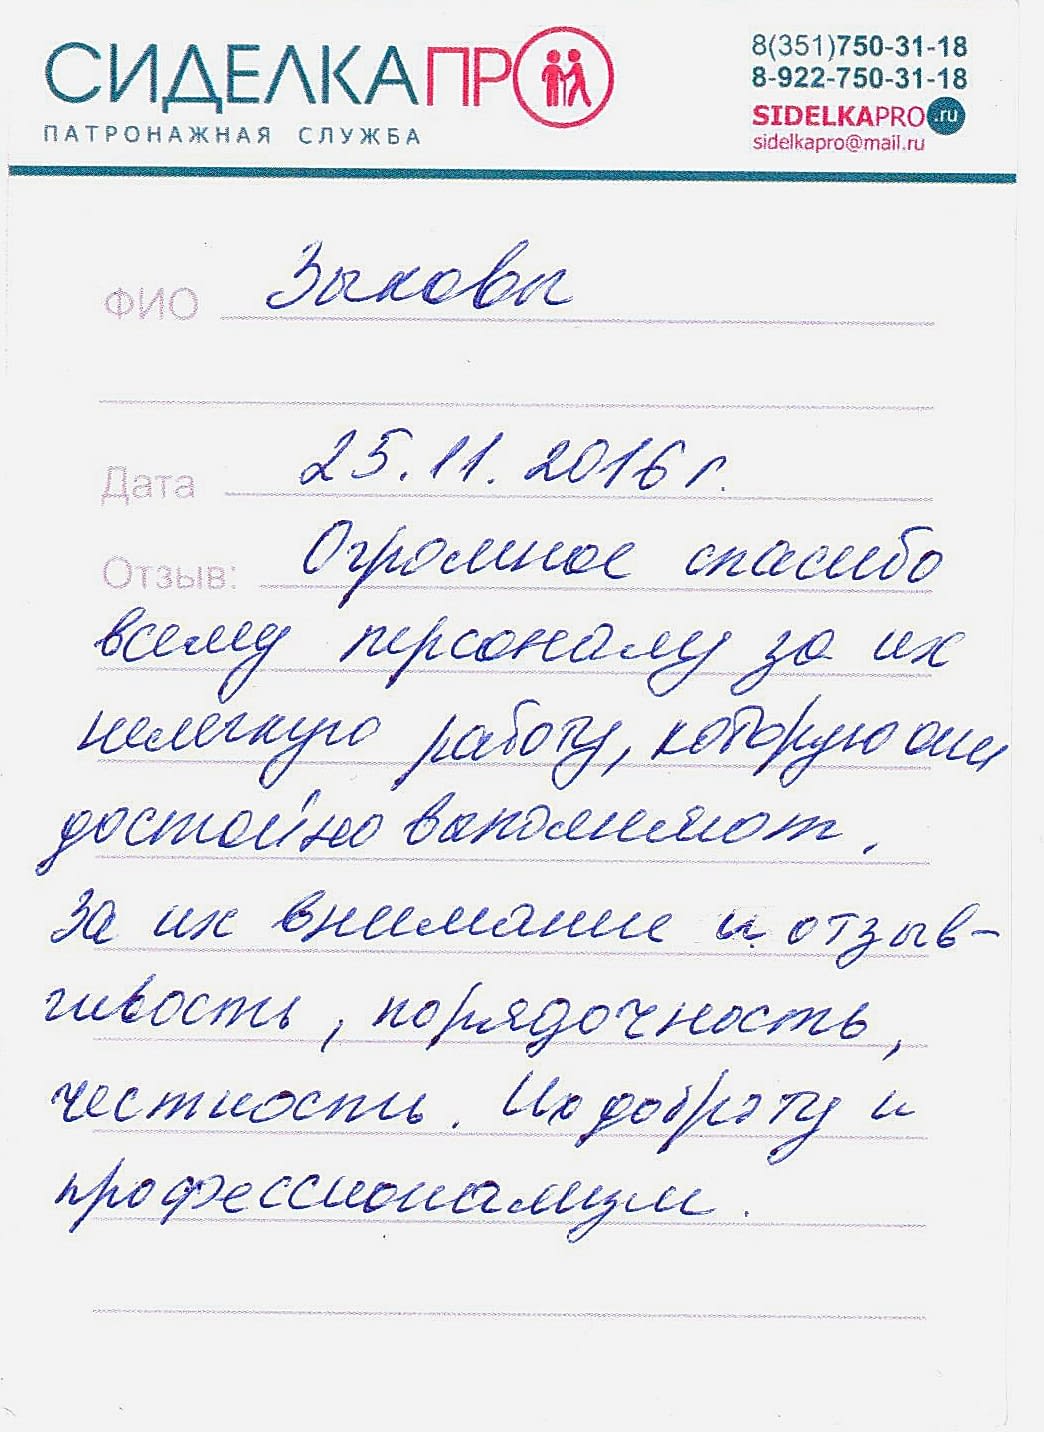 СИДЕЛКАПРО
ПАТРОНАЖНАЯ СЛУЖБА
8(351)750-31-18
8-922-750-31-18
SIDELKAPRO.ru
sidelkapro@mail.ru
ФИО Зыковы
Дата 25.11.2016 г.
Отзыв: Огромное спасибо
всему персоналу за их
нелегкую работу, которую они
достойно выполняют.
За их внимание и отзыв-
чивость, порядочность,
честность. Их доброту и
профессионализм.